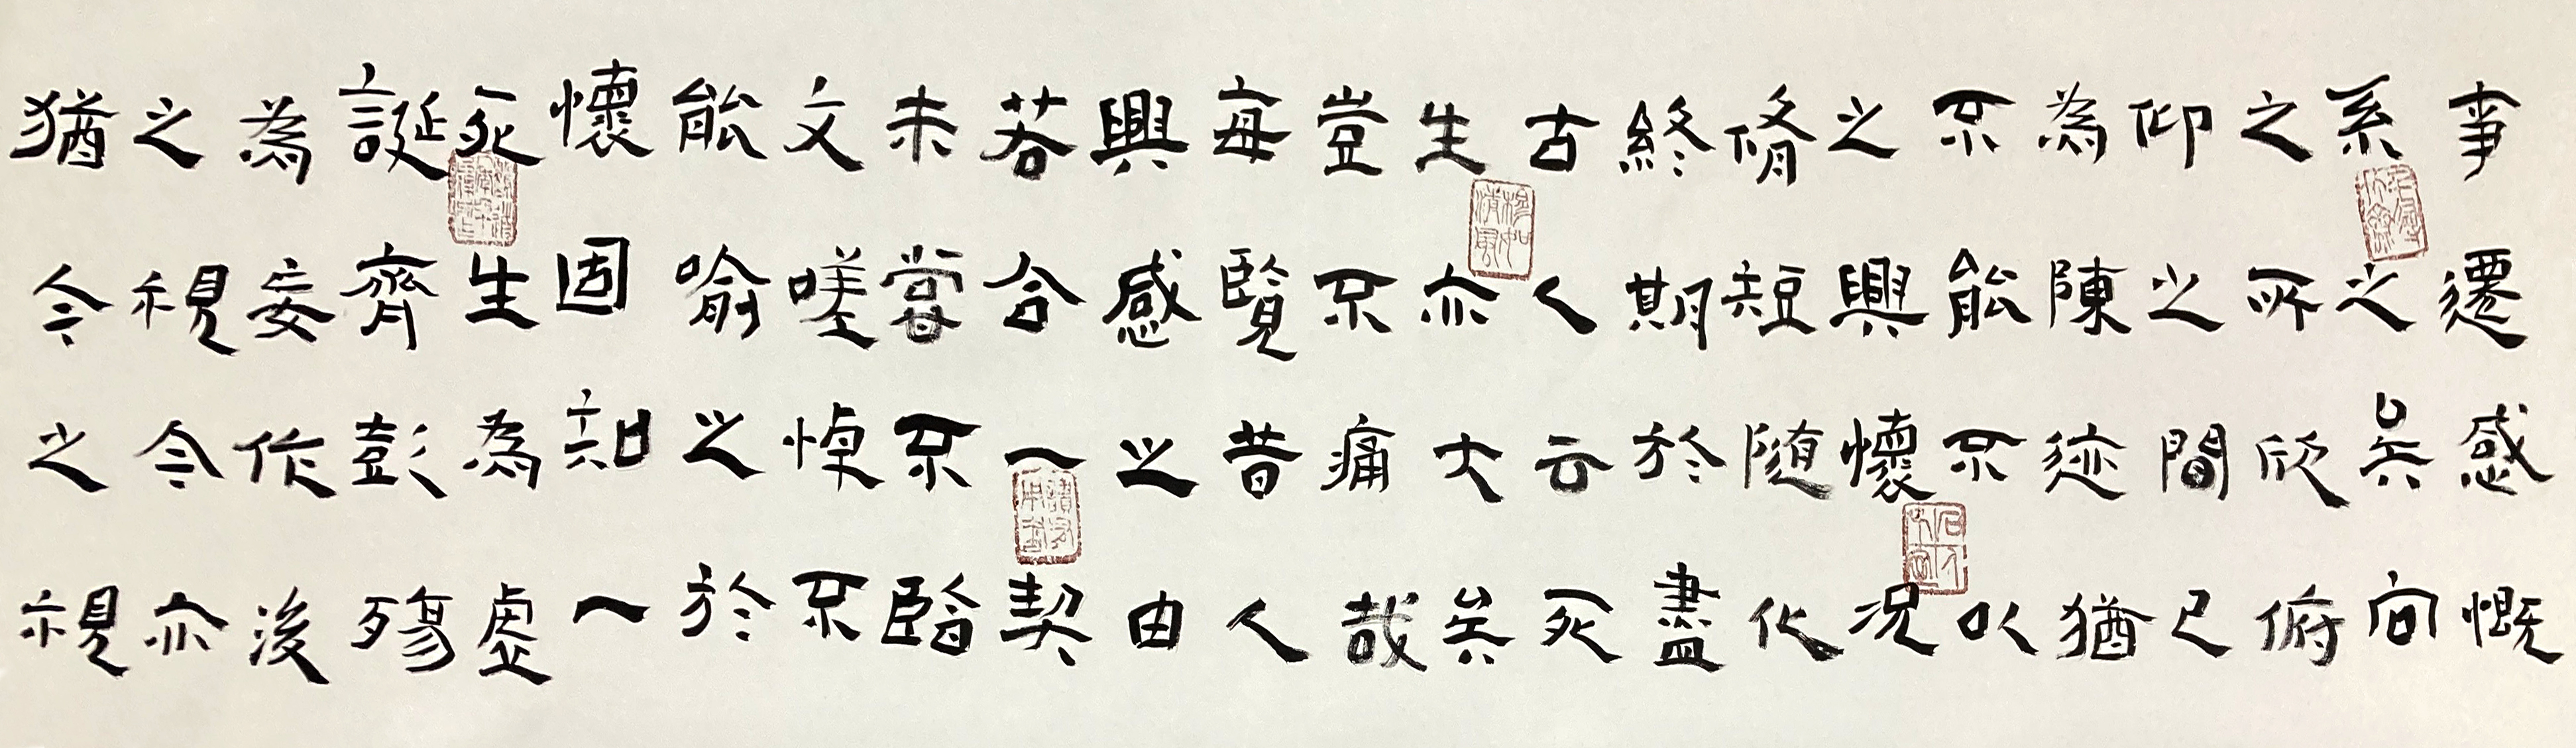 事遷感慨
系之矣向
之所欣俯
仰之間已
為陳迹猶
不能不以
之興懷况
脩短随化
終期於盡
古人云死
生亦大矣
豈不痛哉
每覽昔人
興感之由
若合一契
未嘗不臨
文嗟悼不
能喻之於
懷固知一
死生為虛
誕齊彭殤
為妄作後
之視今亦
猶今之視
穆如清風